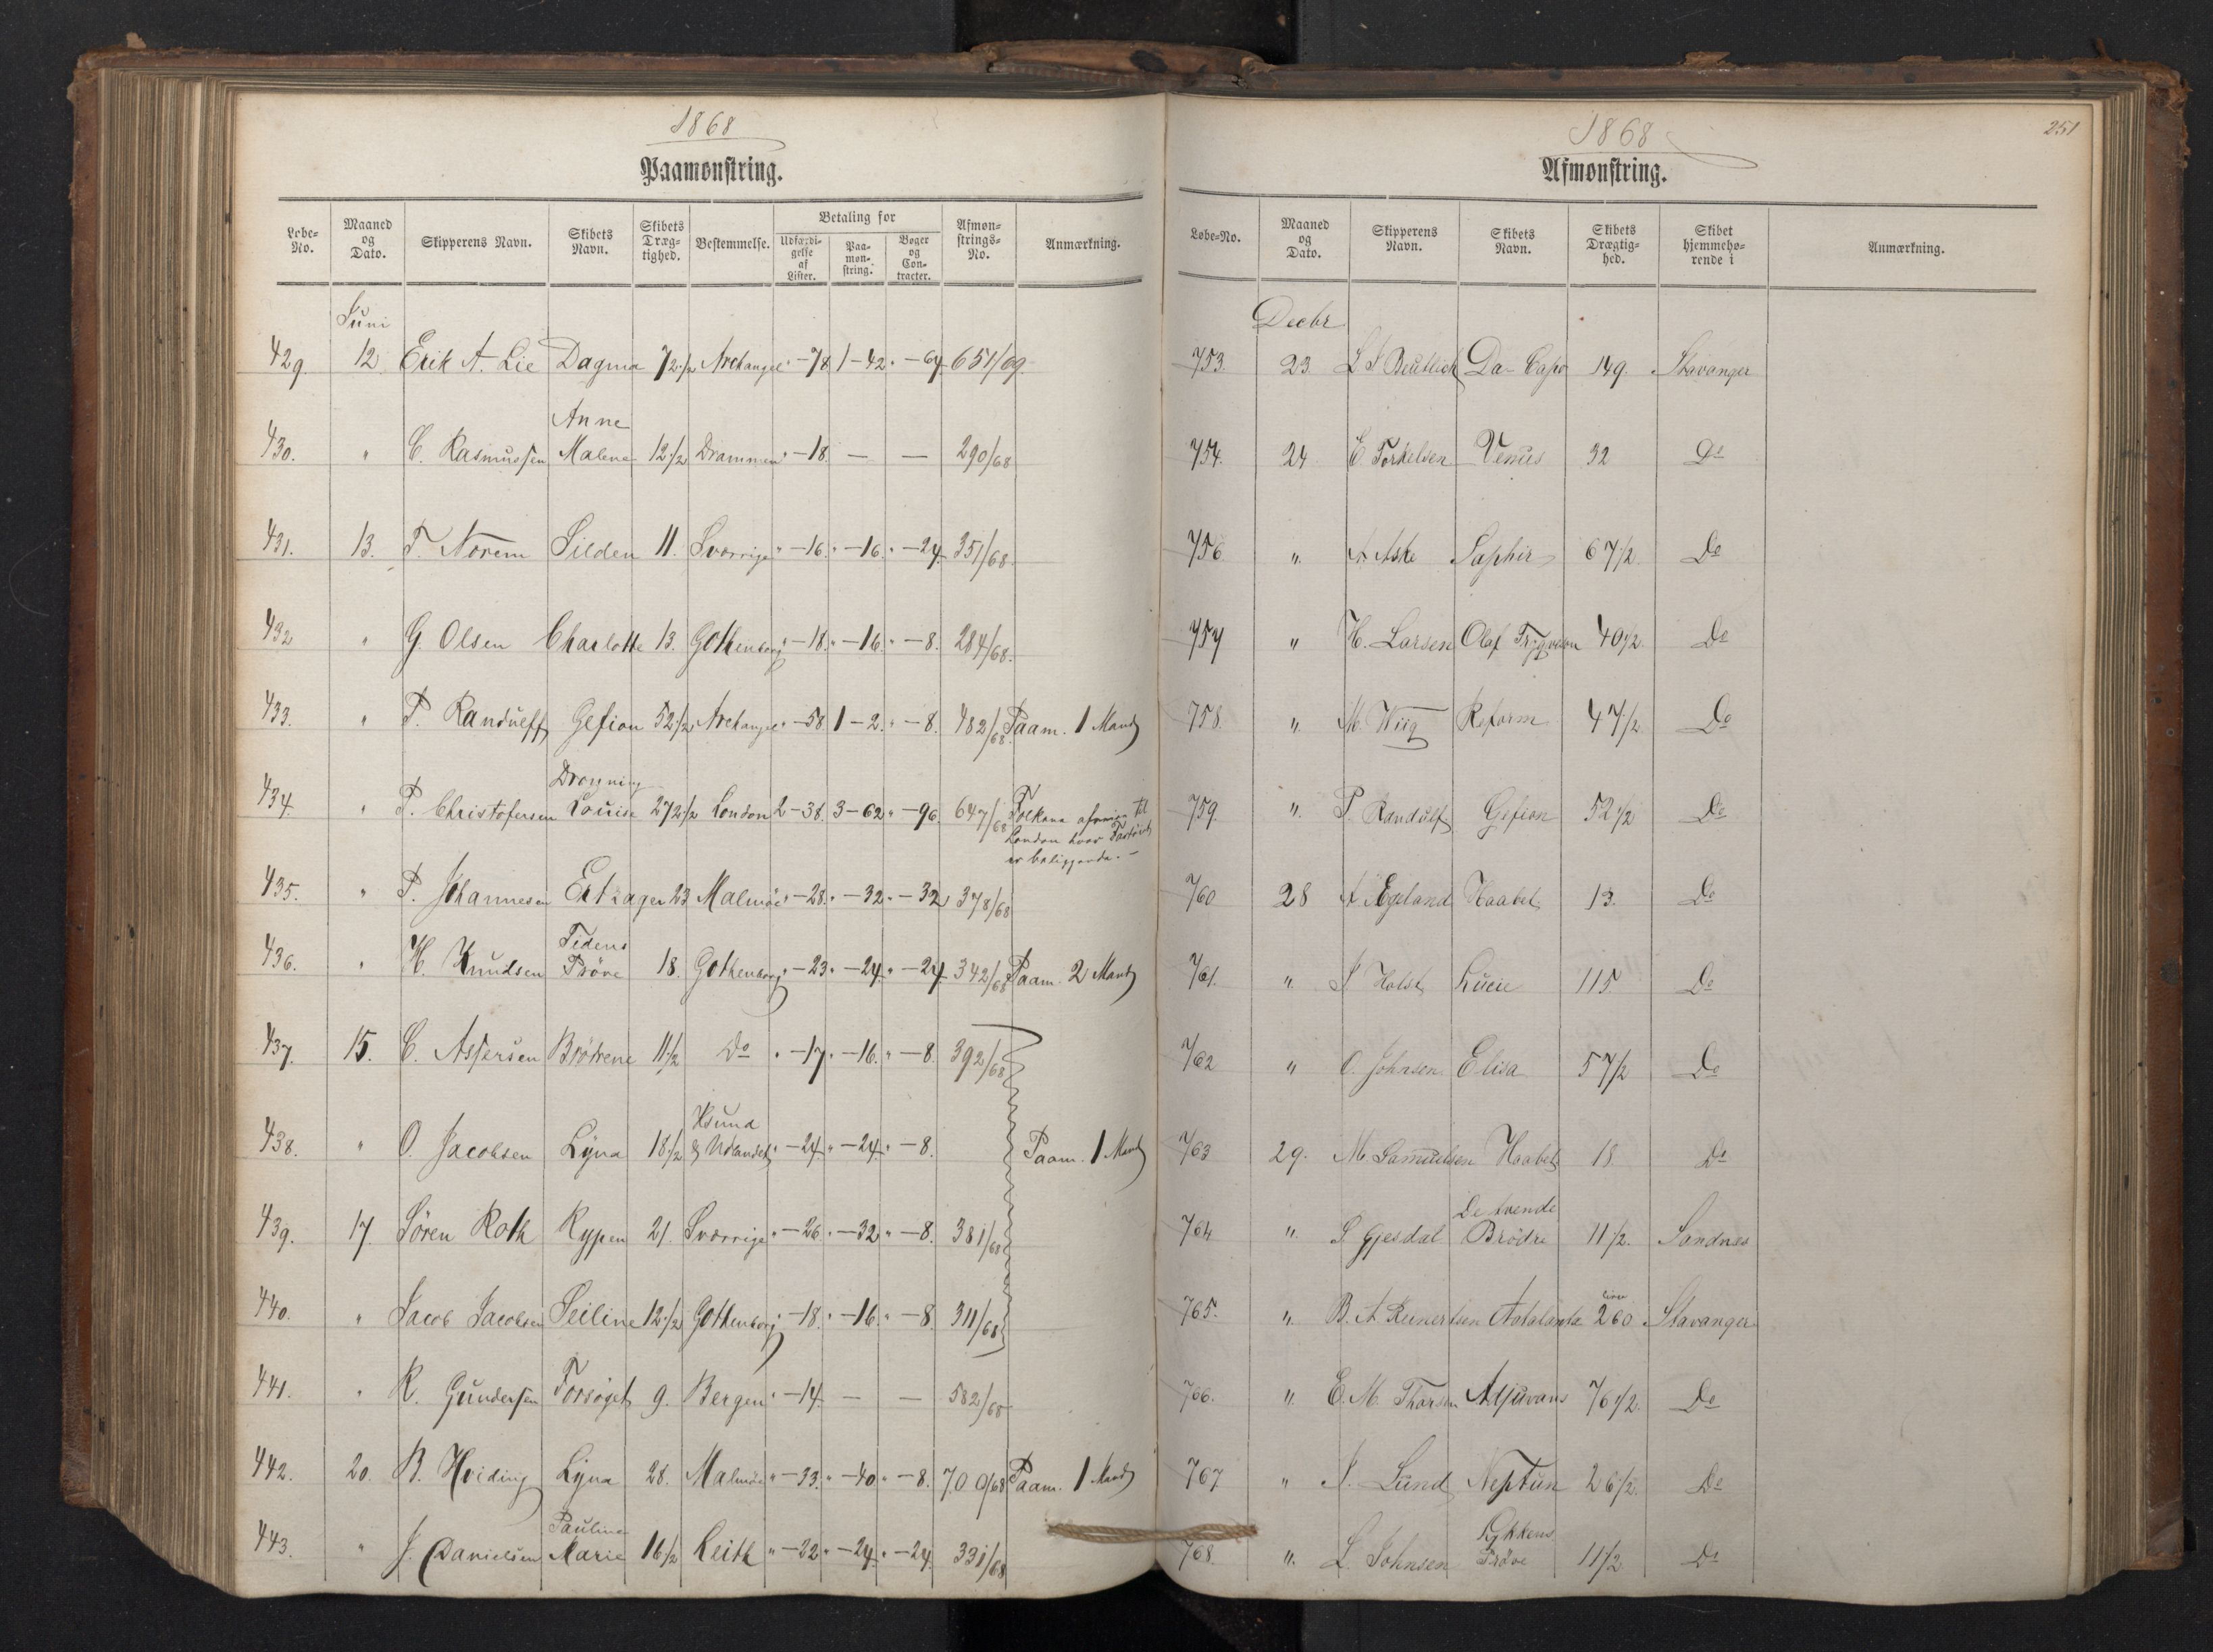 1868
Paamønstring.
Løbe-No. Maaned og Dato. Skipperens Navn. Skibets Navn. Skibets Dræg-tighed. Bestemmelse. Betaling for Udfærdi-gelse af Lister. Paa-møn-string. Bøger og Con-tracter. Afmøn-strings-No. Anmærkning.
Juni
429. 12. Erik A. Lie Dagmar 72 1/2 Archangel " - 78. 1 - 42. " - 64. 651/69
Anne
430. " C. Rasmussen Malene 12 1/2 Drammen " - 18. — — 290/68
431. 13. T. Norem Silden 11. Sverrige " - 16. " - 16. " - 24. 351/68.
432 " G. Olsen Charlotte 13. Gothenborg " - 18. " - 16. " - 8. 284/68.
433. " P. Randulff Gefion 52 1/2 Archangel " - 58. 1 - 2. " - 8. 482/68. Paam. 1 Mand
Dronning
434. " P. Christofersen Louise 272 1/2 London 2 - 38. 3 - 62 " - 96. 647/68 Folkene til
London hvor Fartöiet
er beliggende. —
435. " P. Johannesen 23 Malmöe " - 28. " - 32. " - 32. 378/68
Tidens
436. " H. Knudsen Pröve 18. Gothenborg " - 23. " - 24. " - 24. 342/68 Paam. 2 Mand
437. 15. C. Assersen Brödrene 11 1/2 Do " - 17. " - 16. " - 8. 392/68
438. " O. Jacobsen Lyna 18 1/2 & Udlandet " - 24. " - 24. " - 8. Paam. 1 Mand
439. 17. Sören Roth Rypen 21. Sverrige " - 26. " - 32. " - 8. 381/68
440. " Jacob Jacobsen Seiline 12 1/2 Gothenborg " - 18. " - 16. " - 8. 311/68
441. " R. Gundersen Forsöget 9. Bergen " - 14. — — 582/68
442. 20. B. Hviding Lyna 28. Malmöe " - 33. " - 40. " - 8. 700/68 Paam. 1 Mand
Pauline
443. " J. Danielsen Marie 16 1/2 Leith " - 22. " - 24. " - 24. 331/68
1868
251
Afmønstring.
Løbe-No. Maaned og Dato. Skipperens Navn. Skibets Navn. Skibets Drægtig-hed. Skibet hjemmehø-rende i Anmærkning.
Decbr
753. 23. Da-Capo 149. Stavanger
754. 24 E. Torkelsen Venus 32 Do
756. " A. Aske Saphir 67 1/2 Do
757 " H. Larsen Olaf Trygveson 40 1/2. Do
758. " M. Wiig Reform 47 1/2 Do
759. " P. Randulf Gefion 52 1/2 Do
760 28 A. Egeland Haabet 13. Do
761. " J. Holst Lucie 115. Do
762 " O. Johnsen Elisa 57 1/2 Do
763 29. M. Samuelsen Haabet 18. Do
De tvende
764 " S. Gjesdal Brödre 11 1/2. Sandnes
765. " B. A. Reinertsen 260 Stavanger
766. " E. M. Thorsen Adjuvans 76 1/2. Do
767 " J. Lund Neptun 26 1/2. Do
Lykkens
768. " L. Johnsen Pröve 11 1/2 Do